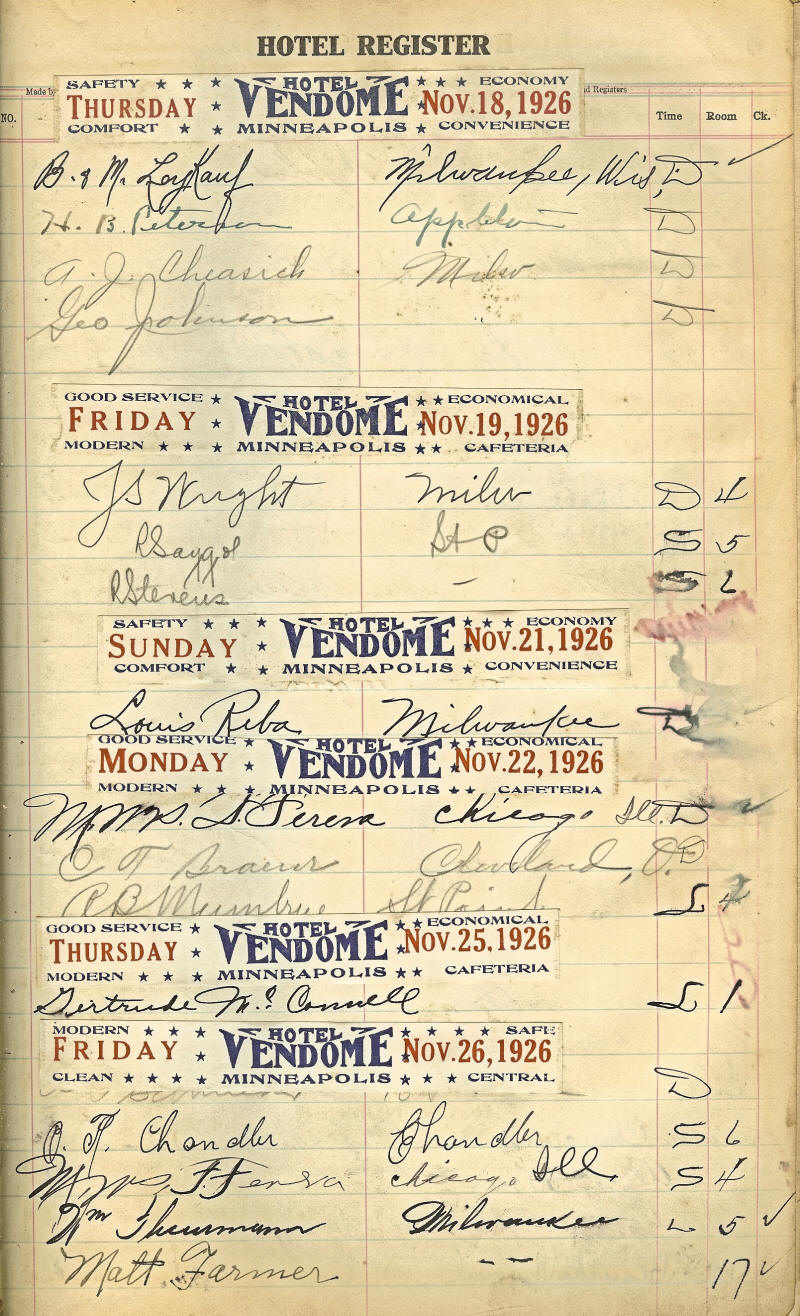 HOTEL REGISTER
Made by
d Registers
NO. Time Room Ck.
SAFETY ★ ★ ★ HOTEL ★ ★ ★ ECONOMY
THURSDAY ★ VENDOME Nov. 18, 1926
COMFORT ★ ★ MINNEAPOLIS ★ CONVENIENCE
B. & M. Leykauf Milwaukee, Wis, D ✓
H. B. Peterson Appleton D
A. J. Cheasick Milw D
Geo Johnson D
GOOD SERVICE ★ HOTEL ★ ★ ECONOMICAL
FRIDAY ★ VENDOME Nov. 19, 1926
MODERN ★ ★ ★ MINNEAPOLIS ★ ★ CAFETERIA
JS Wright Milw D 4
R Saygol St P S 5
R Stevens – S 6
SAFETY ★ ★ ★ HOTEL ★ ★ ★ ECONOMY
SUNDAY ★ VENDOME Nov. 21, 1926
COMFORT ★ ★ MINNEAPOLIS ★ CONVENIENCE
Louis Reba Milwaukee D
GOOD SERVICE ★ HOTEL ★ ★ ECONOMICAL
MONDAY ★ VENDOME Nov. 22, 1926
MODERN ★ ★ ★ MINNEAPOLIS ★ ★ CAFETERIA
Chicago Ill. D ✓
C T Cleveland, O. D
R B St Paul L 4
GOOD SERVICE ★ HOTEL ★ ★ ECONOMICAL
THURSDAY ★ VENDOME Nov. 25, 1926
MODERN ★ ★ ★ MINNEAPOLIS ★ ★ CAFETERIA
Gertrude Mc Connell L 1
MODERN ★ ★ ★ ★ HOTEL ★ ★ ★ ★ SAFE
FRIDAY ★ VENDOME Nov. 26, 1926
CLEAN ★ ★ ★ ★ MINNEAPOLIS ★ ★ ★ CENTRAL
D
O. T. Chandler Chandler S 6
Chicago Ill. S 4
Wm Thurmann Milwaukee L 5 ✓
Matt Farmer – – 17 ✓